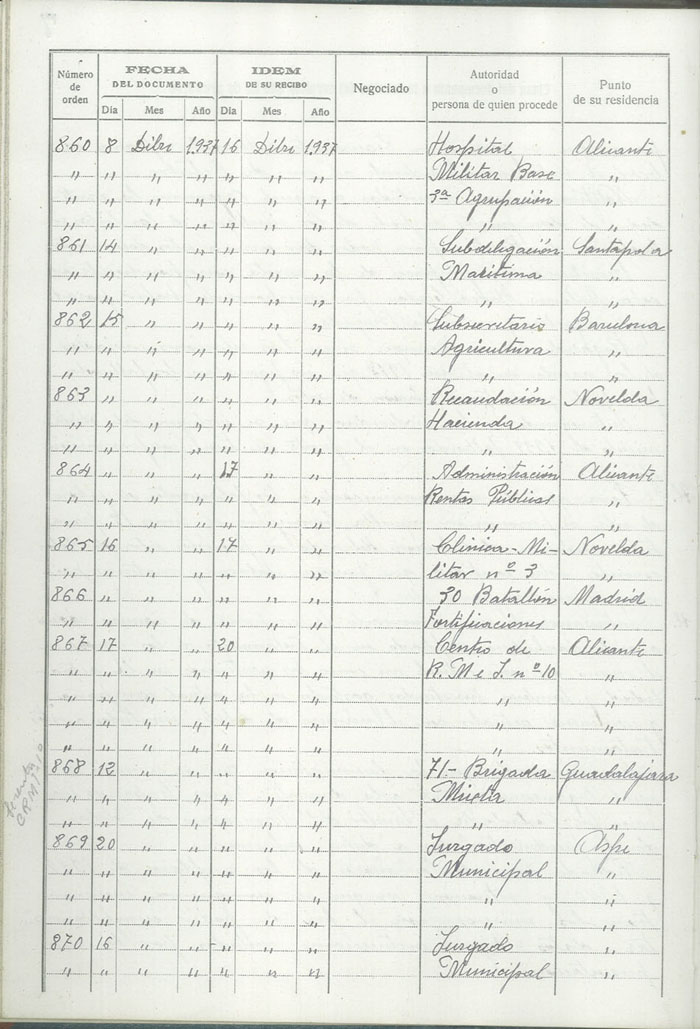 Número de orden | FECHA DEL DOCUMENTO | IDEM DE SU RECIBO | Negociado | Autoridad o persona de quien procede | Punto de su residencia
Día Mes Año Día Mes Año
860 8 Dibre 1.937 16 Dibre 1.937 Hospital Alicante
" " " " " " " Militar Base "
" " " " " " " 3ª Agrupación "
" " " " " " " " "
861 14 " " " " " Subdelegación Santapola
" " " " " " " Marítima "
" " " " " " " " "
862 15 " " " " " Subsecretario Barcelona
" " " " " " " Agricultura "
" " " " " " " " "
863 " " " " " " Recaudación Novelda
" " " " " " " Hacienda "
" " " " " " " " "
864 " " " 17 " " Administración Alicante
" " " " " " " Rentas Públicas "
" " " " " " " " "
865 16 " " 17 " " Clinica-Mi- Novelda
" " " " " " " litar nº 3 "
866 " " " " " " 30 Batallón Madrid
" " " " " " " Fortificaciones "
867 17 " " 20 " " Centro de Alicante
" " " " " " " R. M e I. nº 10 "
" " " " " " " " "
" " " " " " " " "
" " " " " " " " "
868 12 " " " " " 71- Brigada Guadalajara
" " " " " " " Mixta "
" " " " " " " " "
869 20 " " " " " Juzgado Aspe
" " " " " " " Municipal "
" " " " " " " " "
" " " " " " " " "
870 16 " " " " " Juzgado "
" " " " " " " Municipal "
CRM